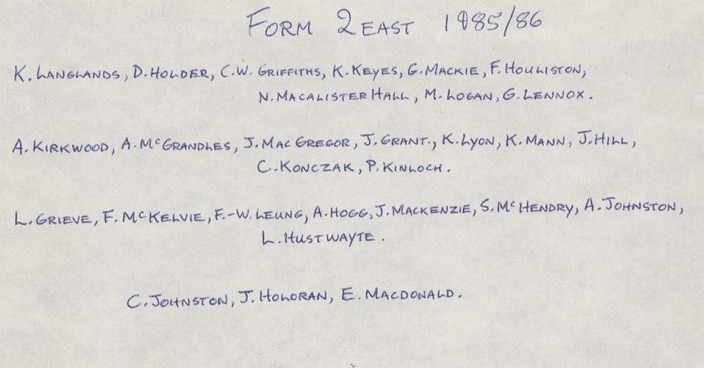 FORM 2 EAST 1985/86
K. LANGLANDS, D. HOLDER, C.W. GRIFFITHS, K. KEYES, G. MACKIE, F. HOULISTON,
N. MACALISTER HALL, M. LOGAN, G. LENNOX.
A. KIRKWOOD, A. McGRANDLES, J. MACGREGOR, J. GRANT., K. LYON, K. MANN, J. HILL,
C. KONCZAK, P. KINLOCH.
L. GRIEVE, F. McKELVIE, F.-W. LEUNG, A. HOGG, J. MACKENZIE, S. McHENDRY, A. JOHNSTON,
L. HUSTWAYTE.
C. JOHNSTON, J. HOLORAN, E. MACDONALD.